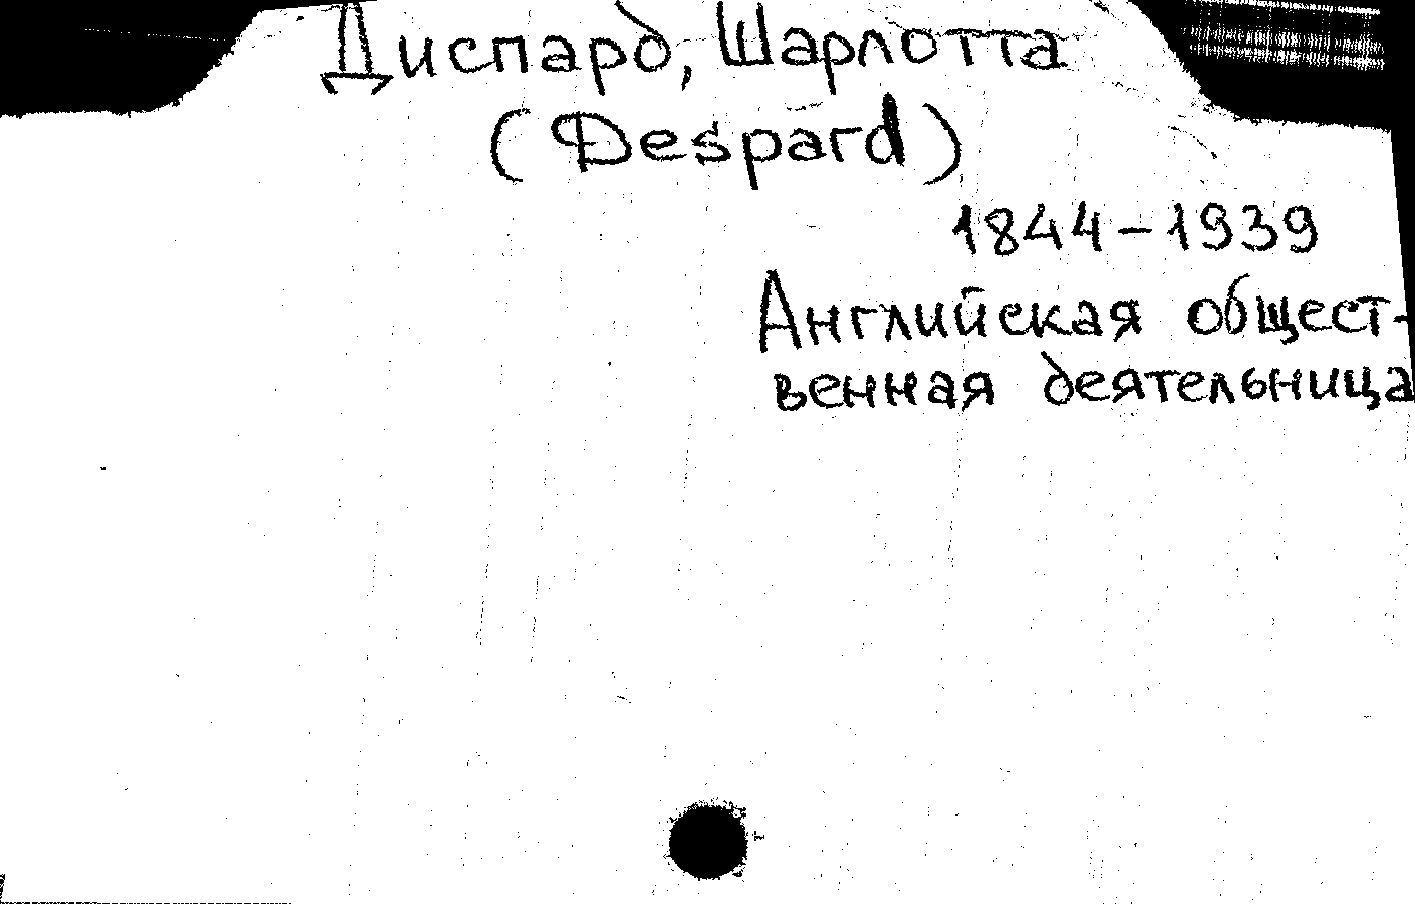 Диспард, Шарлотта
(Despard)
1844-1939
Английская общест-
венная деятельница